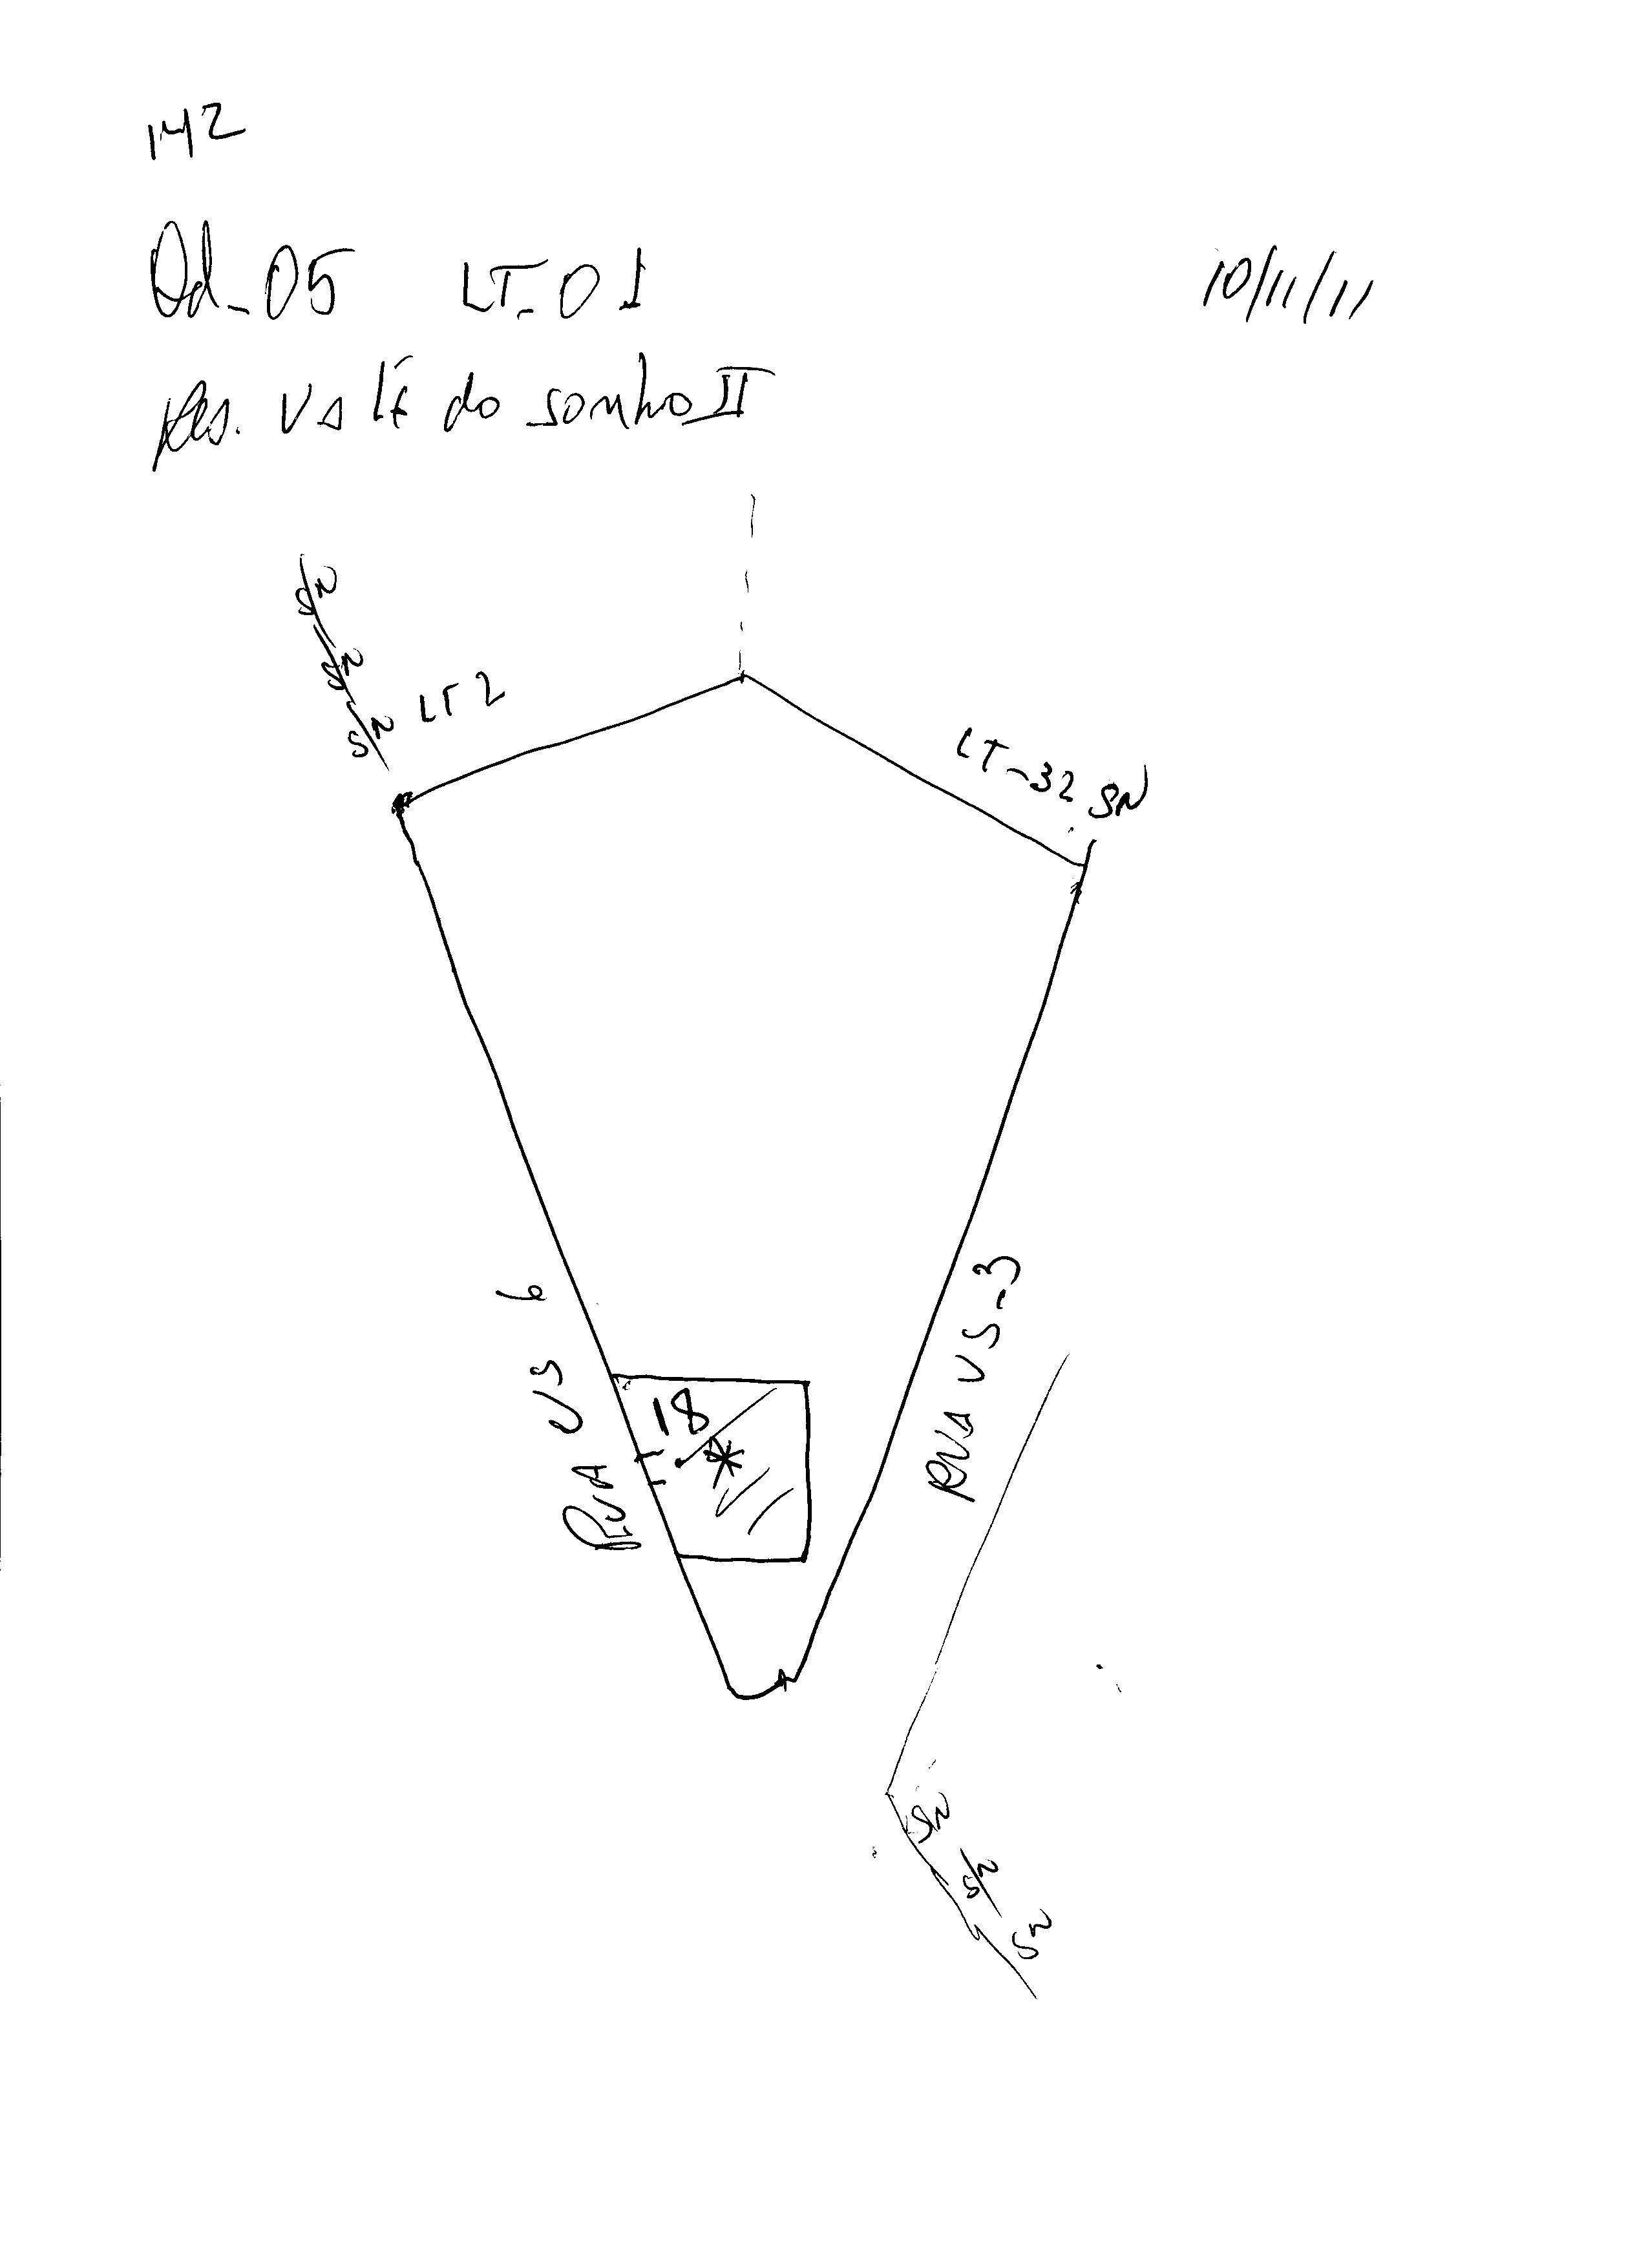 142
Qd-05 LT-01 10/11/11
Res. Vale do sonho II
SN
SN
SN LT 2
LT-32 SN
RUA VS 6
18
RUA VS-3
SN
SN
SN